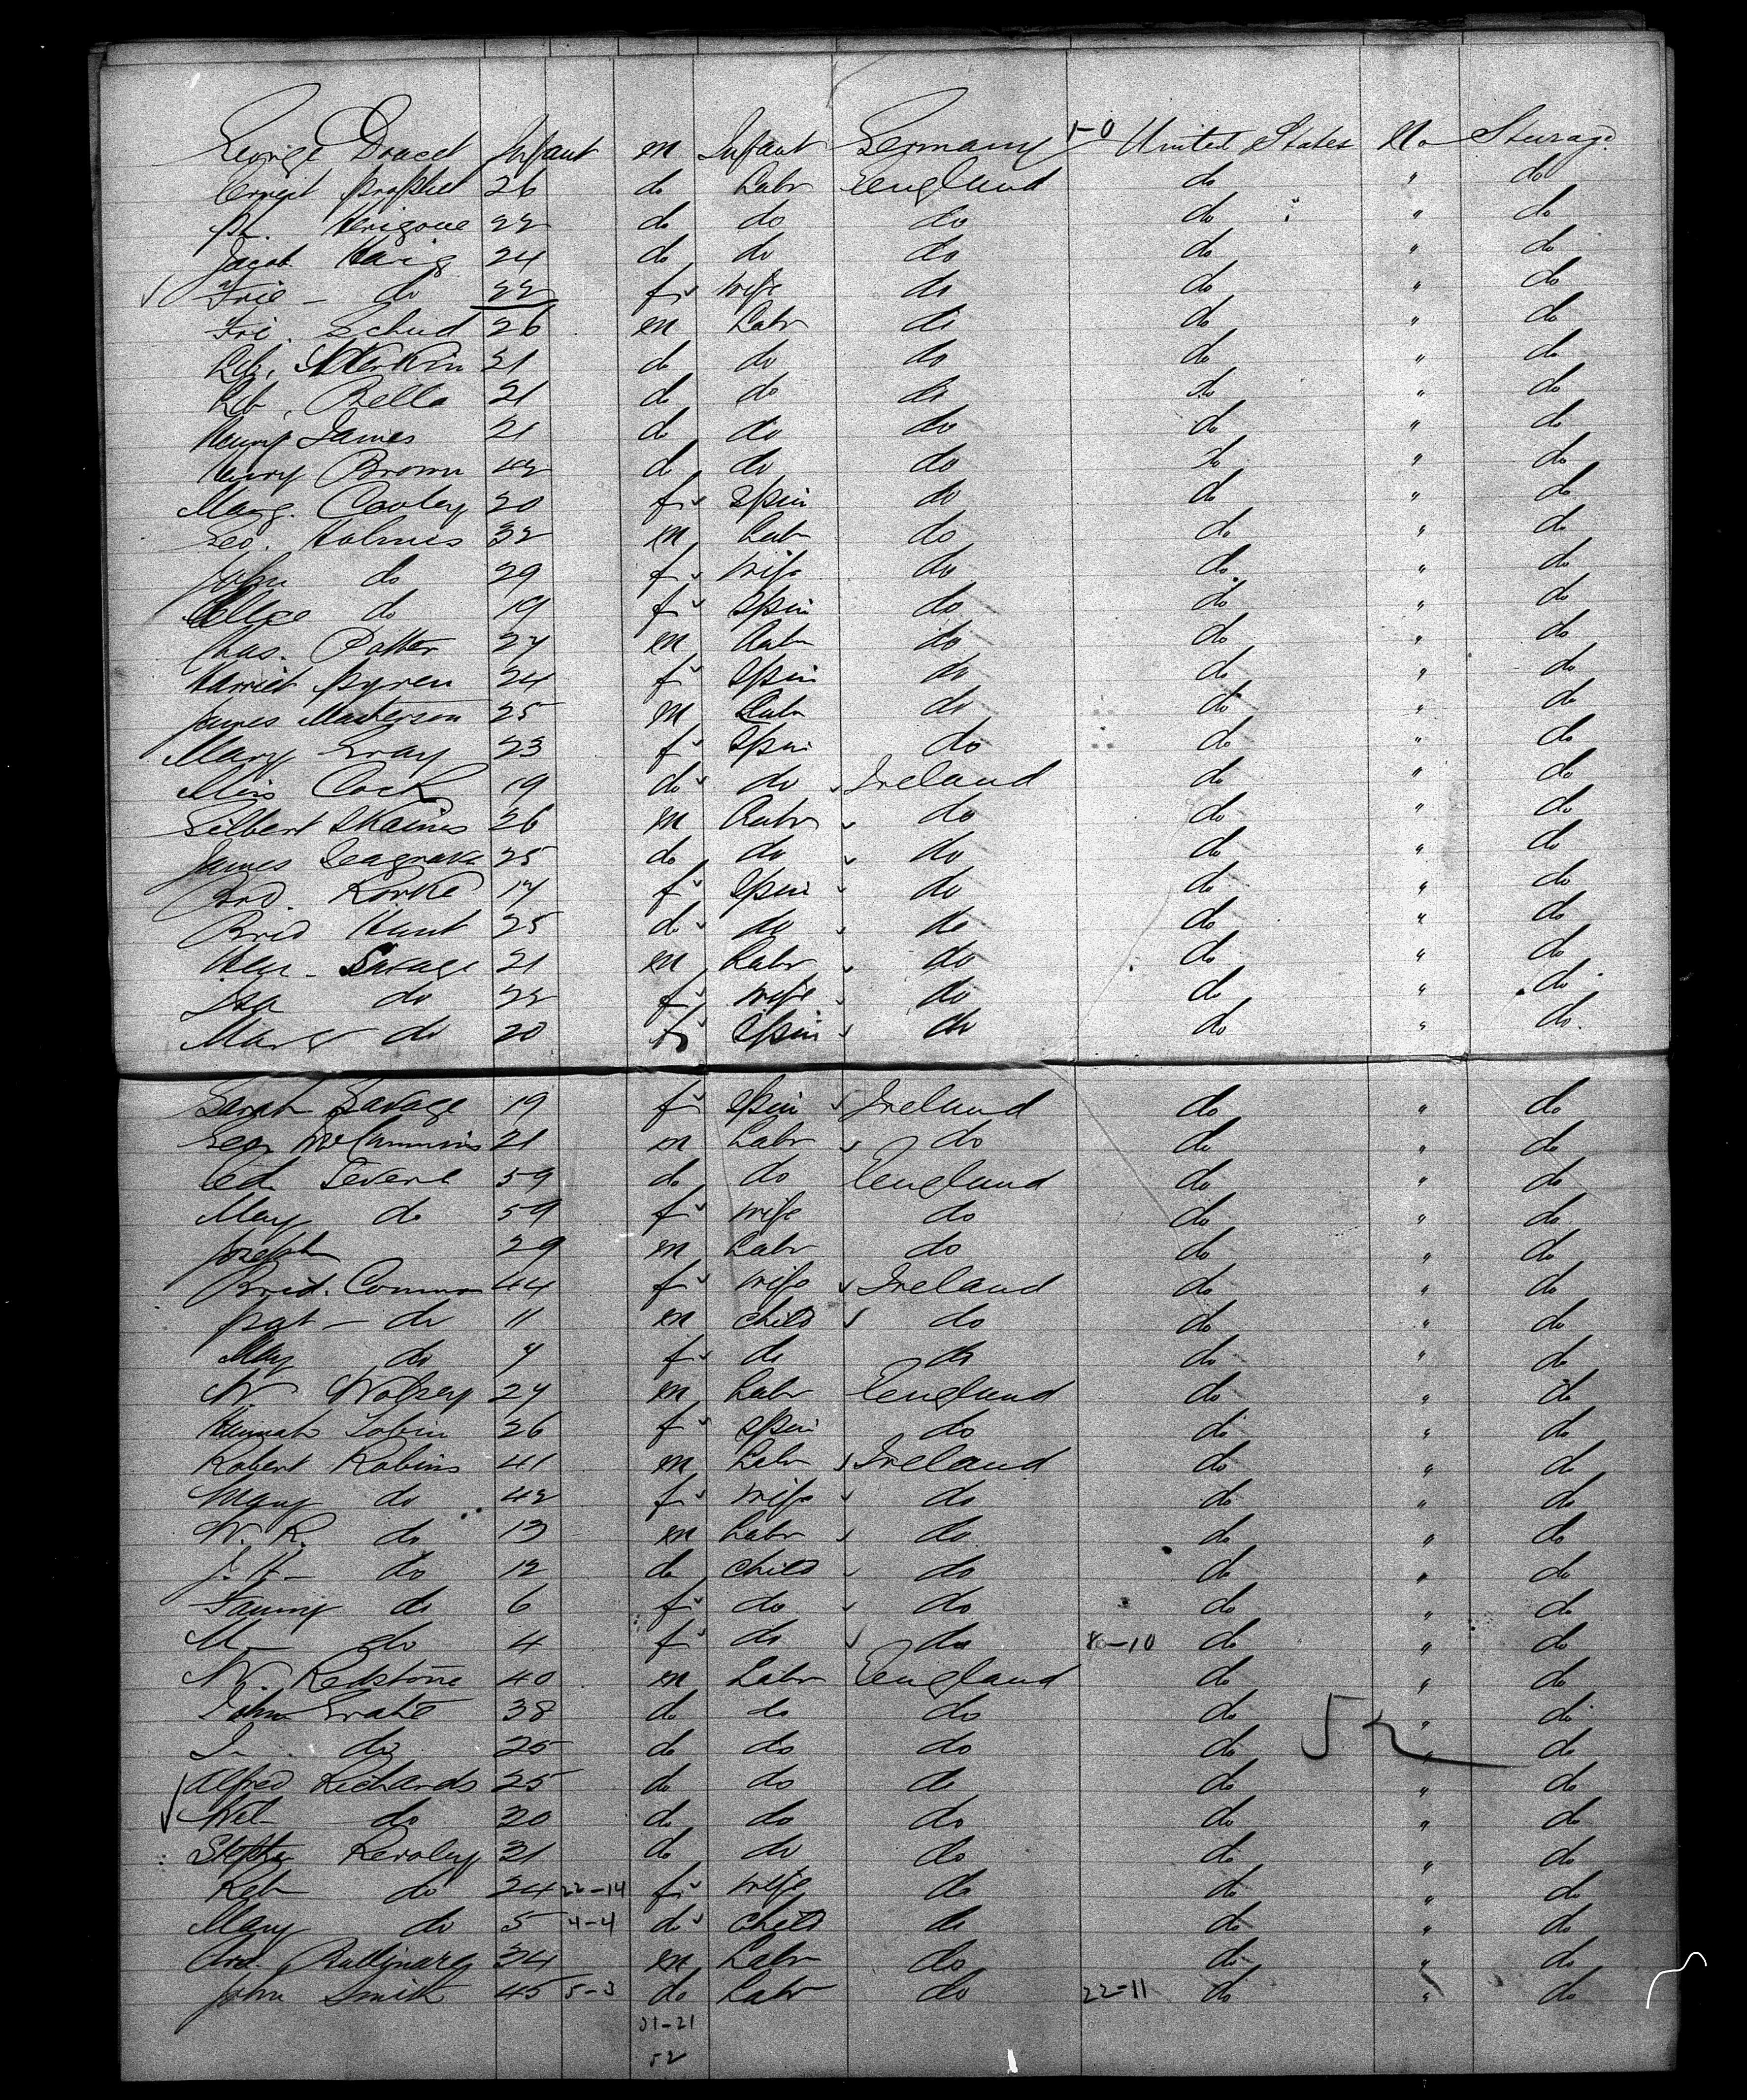 George Doucet Infant m Infant Germany 1-0 United States No Steerage
Ernest Prophet 26 do Labr England do " do
22 do do do do " do
Jacob Haig 24 do do do do " do
Frie - do 22 f wife do do " do
Fri. Schud 26 m Labr do do " do
21 do do do do " do
Bella 21 do do do do " do
Henry James 21 do do do do " do
Henry Brown 42 do do do do " do
Marg. Cooley 20 f Spin do do " do
Geo. Holmes 32 m Labr do do " do
do 29 f wife do do " do
Alice do 19 f Spin do do " do
Chas. Potter 27 m Labr do do " do
Harriet Pyren 24 f Spin do do " do
James Masterson 25 m Labr do do " do
Mary Gray 23 f Spin do do " do
Miss Cock 19 do do Ireland do " do
Gilbert 26 m Labr do do " do
James Seagrave 25 do do do do " do
Brd. Rorke 17 f Spin do do " do
Brid Hunt 25 do do do do " do
Savage 21 m Labr do do " do
Isa do 22 f wife do do " do
Marg do 20 f Spin do do " do
Sarah Savage 19 f Spin Ireland do " do
Geo McCummins 21 m Labr do do " do
Ed. Severe 59 do do England do " do
May do 59 f wife do do " do
Joseph 29 m Labr do do " do
Brid. Common 44 f wife Ireland do " do
Pat - do 11 m child do do " do
May do 7 f do do do " do
W Wolsey 27 m Labr England do " do
Hannah Tobin 26 f Spin do do " do
Robert Robins 41 m Labr Ireland do " do
Mary do 42 f wife do do " do
W. R. do 13 m Labr do do " do
J. H - do 12 do child do do " do
Fanny do 6 f do do do " do
M - do 4 f do do 8-10 do " do
W. Redstone 40 m Labr England do " do
John Grate 38 do do do do " do
J. do 25 do do do do 52 " do
Alfred Richards 25 do do do do " do
Wil- do 20 do do do do " do
Stephen Keroley 31 do do do do " do
Reb do 24 22-14 f wife do do " do
Mary do 5 4-4 do child do do " do
And. 34 m Labr do do " do
John Smith 45 5-3 do Labr do 22-11 do " do
31-21
52